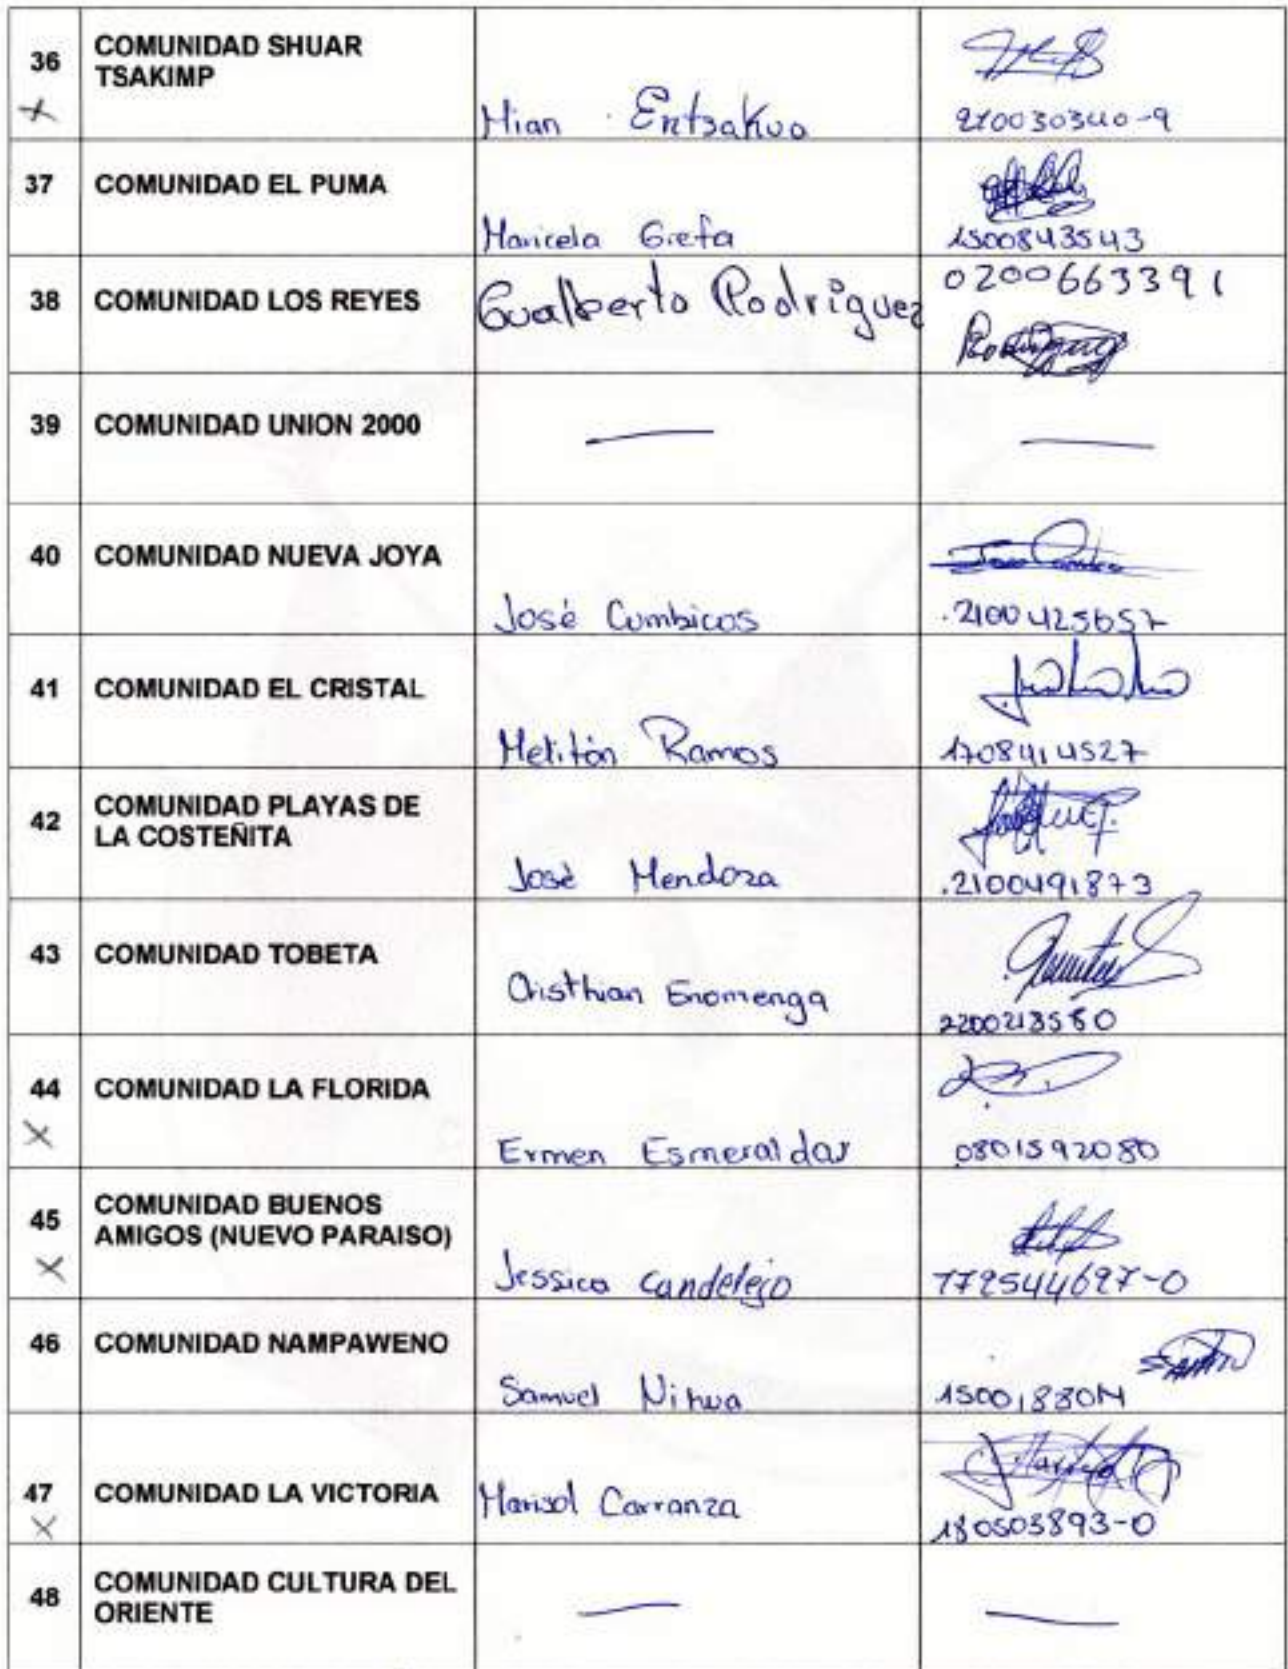 36 COMUNIDAD SHUAR
TSAKIMP
Mian Entsakua
210030340-9
37 COMUNIDAD EL PUMA
Maricela Grefa
1500843543
38 COMUNIDAD LOS REYES
Gualberto Rodriguez
0200663391
39 COMUNIDAD UNION 2000
40 COMUNIDAD NUEVA JOYA
José Cumbicos
2100425657
41 COMUNIDAD EL CRISTAL
Melitón Ramos
1708414527
42 COMUNIDAD PLAYAS DE
LA COSTEÑITA
José Mendoza
.2100491873
43 COMUNIDAD TOBETA
Cristhian Enomenga
2200213580
44 COMUNIDAD LA FLORIDA
X
Ermen Esmeraldas
0801592080
45 COMUNIDAD BUENOS
AMIGOS (NUEVO PARAISO)
X
Jessica Candelejo
172544627-0
46 COMUNIDAD NAMPAWENO
Samuel Nihua
47 COMUNIDAD LA VICTORIA
X
Marisol Carranza
180503893-0
48 COMUNIDAD CULTURA DEL
ORIENTE